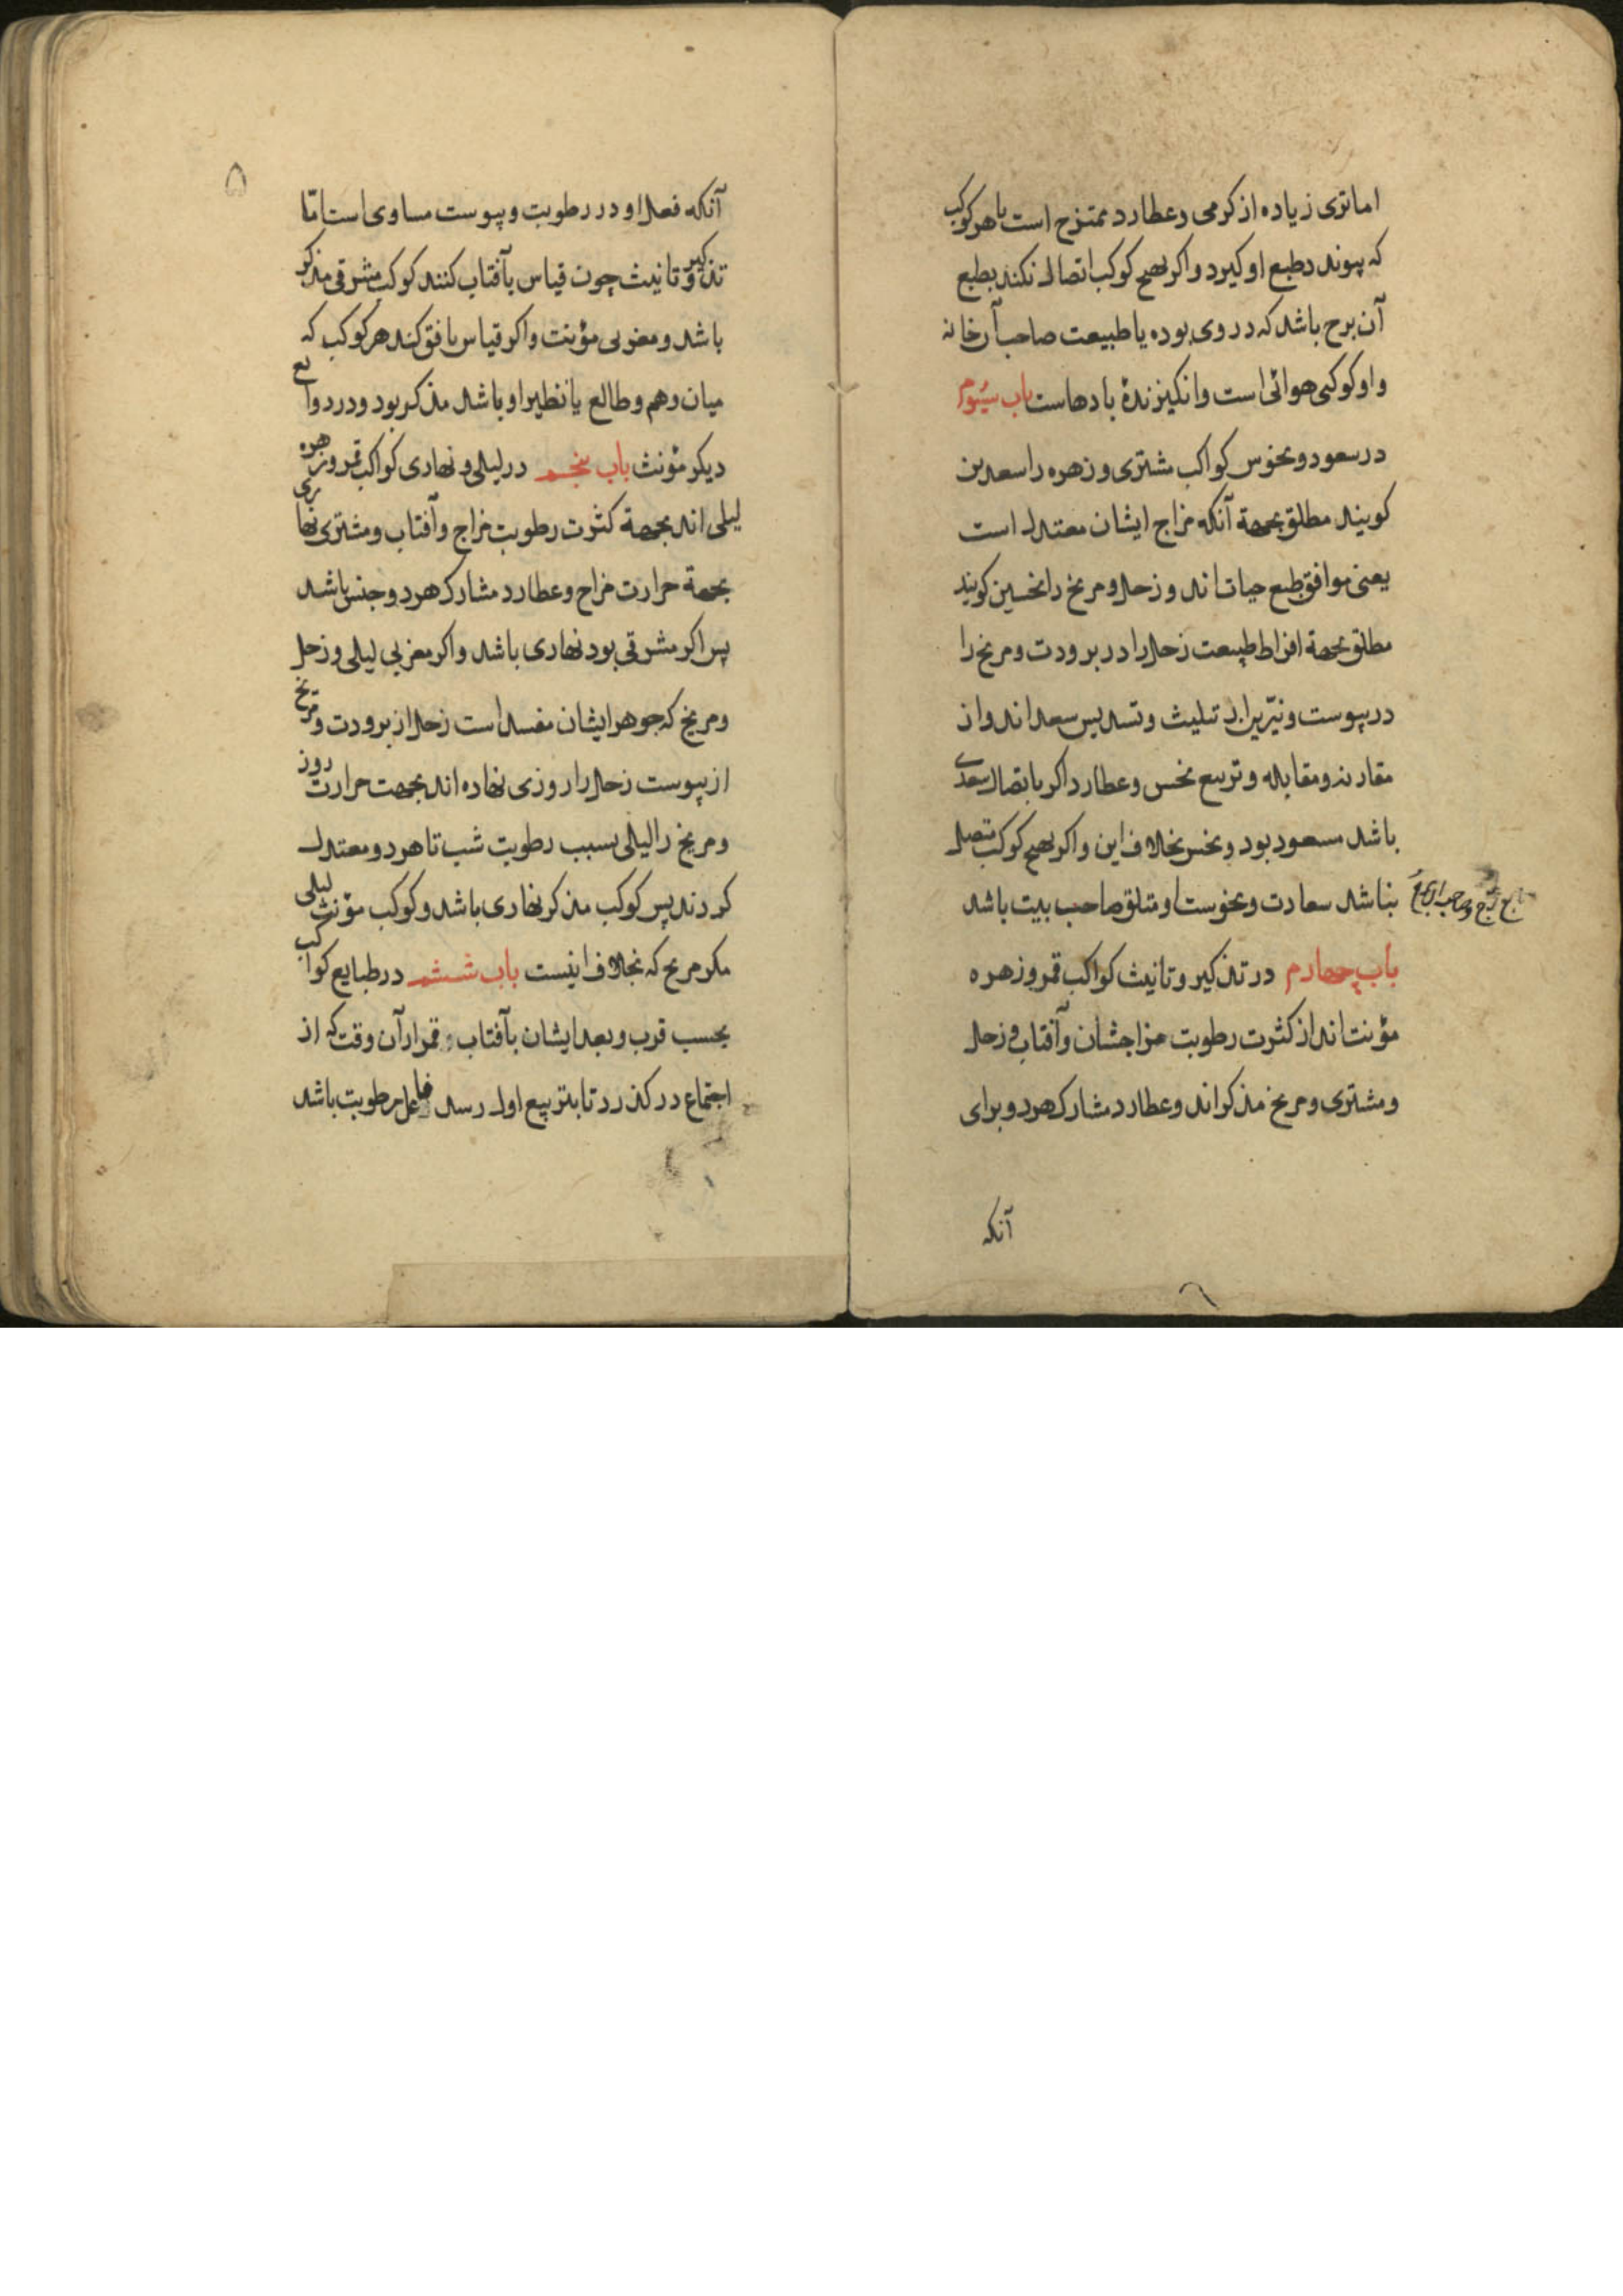 اما تری زیاده از کرمی و عطارد ممتزج است با هر کوکب
که پیوندد طبع او کیرد و اکر بهیچ کوکب اتصال نکند بطبع
آن برج باشد که در وی بوده یا طبیعت صاحب آن خانه
و او کوکبی هوائی است و انکیزندهٔ بادهاست باب سیّوم
در سعود و نحوس کواکب مشتری و زهره را سعدین
کویند مطلق بجهة آنکه مزاج ایشان معتدل است
یعنی موافق طبع حیات اند و زحل و مریخ را نحسین کویند
مطلق بجهة افراط طبیعت زحل را در برودت و مریخ را
در یبوست و نیّرین از تثلیث و تسدیس سعد اند و از
مقارنه و مقابله و تربیع نحس و عطارد اکر با تصال سعدی
باشد مسعود بود و نحس بخلاف این و اکر بهیچ کوکب متصل
نباشد سعادت و نحوست او متعلق صاحب بیت باشد
باب چهارم در تذکیر و تانیث کواکب قمر و زهره
مؤنث اند از کثرت رطوبت مزاجشان و آفتاب و زحل
و مشتری و مریخ مذکر اند و عطارد مشارک هر دو برای
آنکه
آنکه فعل او در رطوبت و یبوست مساوی است امّا
تذکیر و تانیث چون قیاس بآفتاب کنند کوکب مشرقی مذکر
باشد و مغربی مؤنث و اکر قیاس بافق کنند هر کوکب که
میان وهم و طالع یا نظیر او باشد مذکر بود و در دو ربع
دیکر مؤنث باب پنجم در لیلی و نهاری کواکب قمر و زهره
لیلی اند بجهة کثرت رطوبت مزاج و آفتاب و مشتری نهاری
بجهة حرارت مزاج و عطارد مشارک هر دو جنس باشد
پس اکر مشرقی بود نهاری باشد و اکر مغربی لیلی و زحل
و مریخ که جوهر ایشان مفسد است زحل از برودت و مریخ
از یبوست زحل را روزی نهاده اند بجهت حرارت روز
و مریخ را لیلی بسبب رطوبت شب تا هر دو معتدل
کردند پس کوکب مذکر نهاری باشد و کوکب مؤنث لیلی
مکر مریخ که بخلاف اینست باب ششم در طبایع کواکب
بحسب قرب و بعد ایشان بآفتاب و قمر از آن وقت که از
اجتماع در کذرد تا بتربیع اول رسد فاعل رطوبت باشد